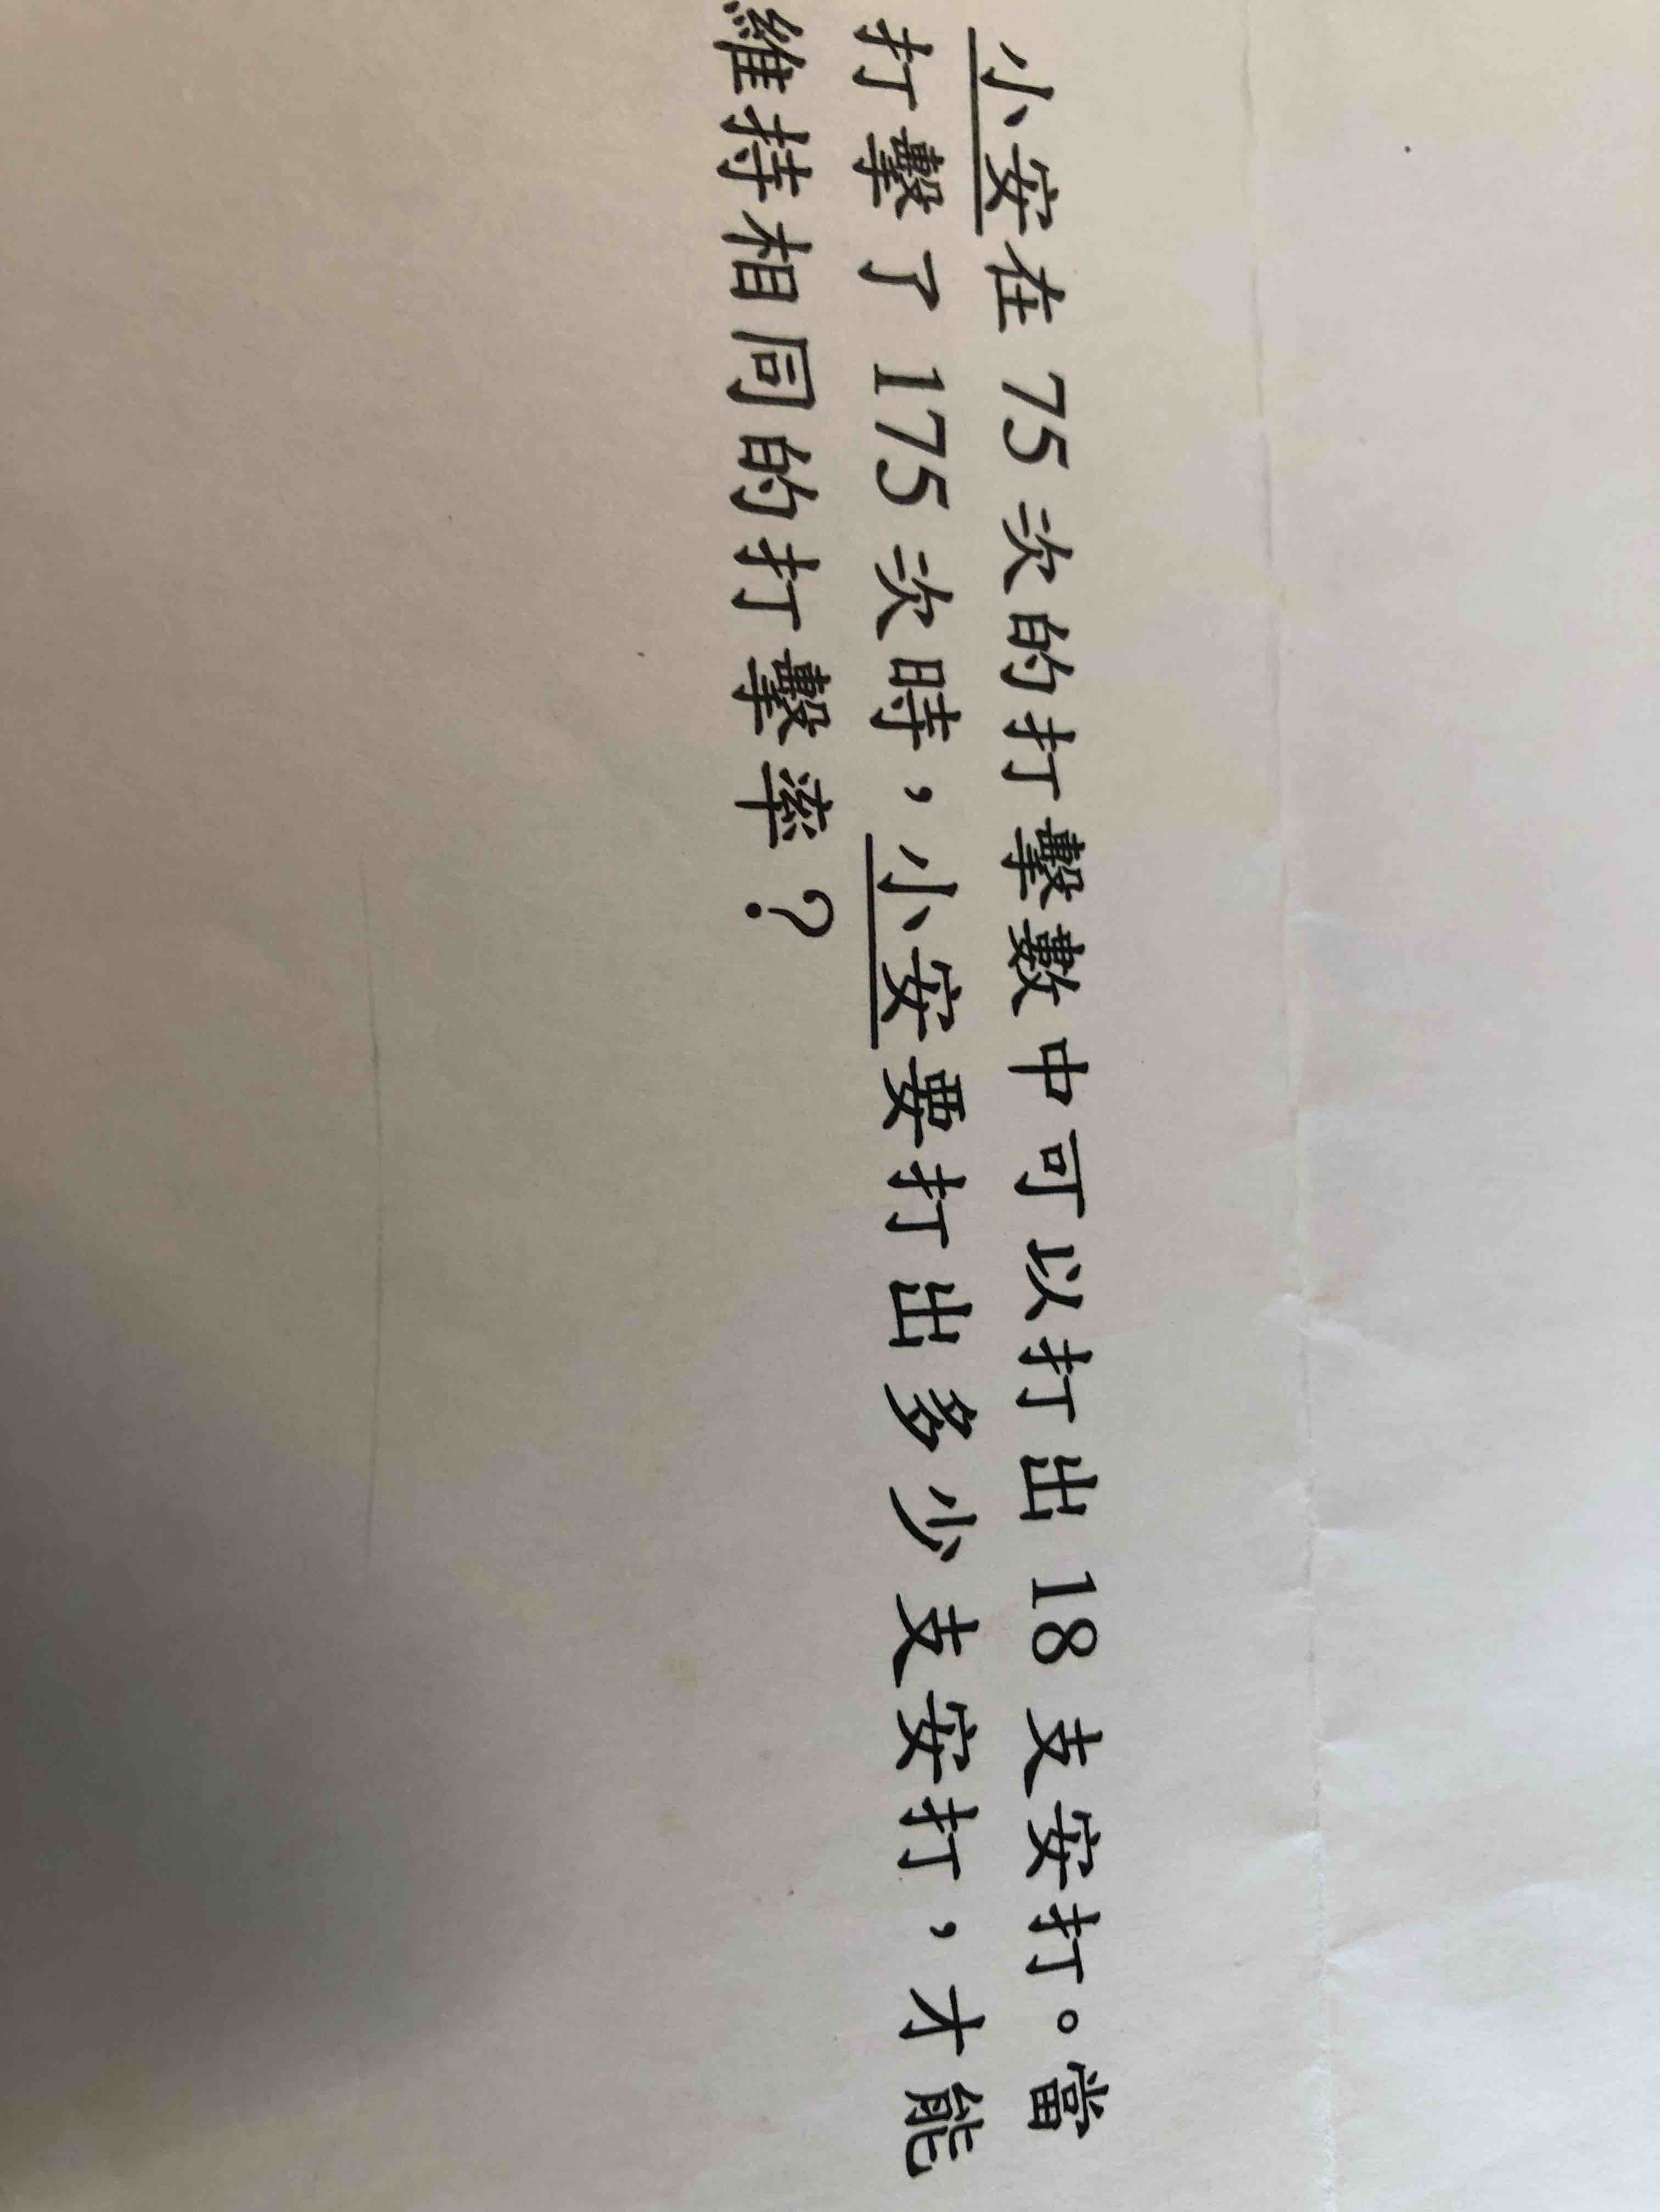 小安在 75 次的打擊數中可以打出 18 支安打。當
打擊了 175 次時，小安要打出多少支安打，才能
維持相同的打擊率？